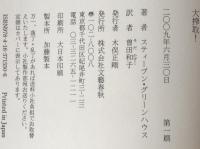 大搾取！
二〇〇九年六月三〇日　第一刷
著者　スティーブン・グリーンハウス
訳者　曽田和子
発行者　木俣正剛
発行所　株式会社文藝春秋
〒一〇二-八〇〇八
東京都千代田区紀尾井町三-二三
印刷所　大日本印刷
製本所　加藤製本
万一、落丁・乱丁があれば送料小社負担でお取替
えいたします。小社製作部宛お送りください。
定価はカバーに表示してあります。
Printed in Japan